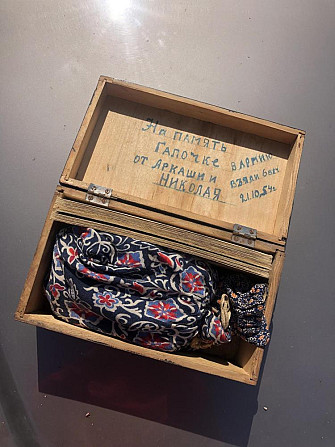 На память
Галочке
от Аркаши и
Николая
в Армии
взяли был
21.10.54г